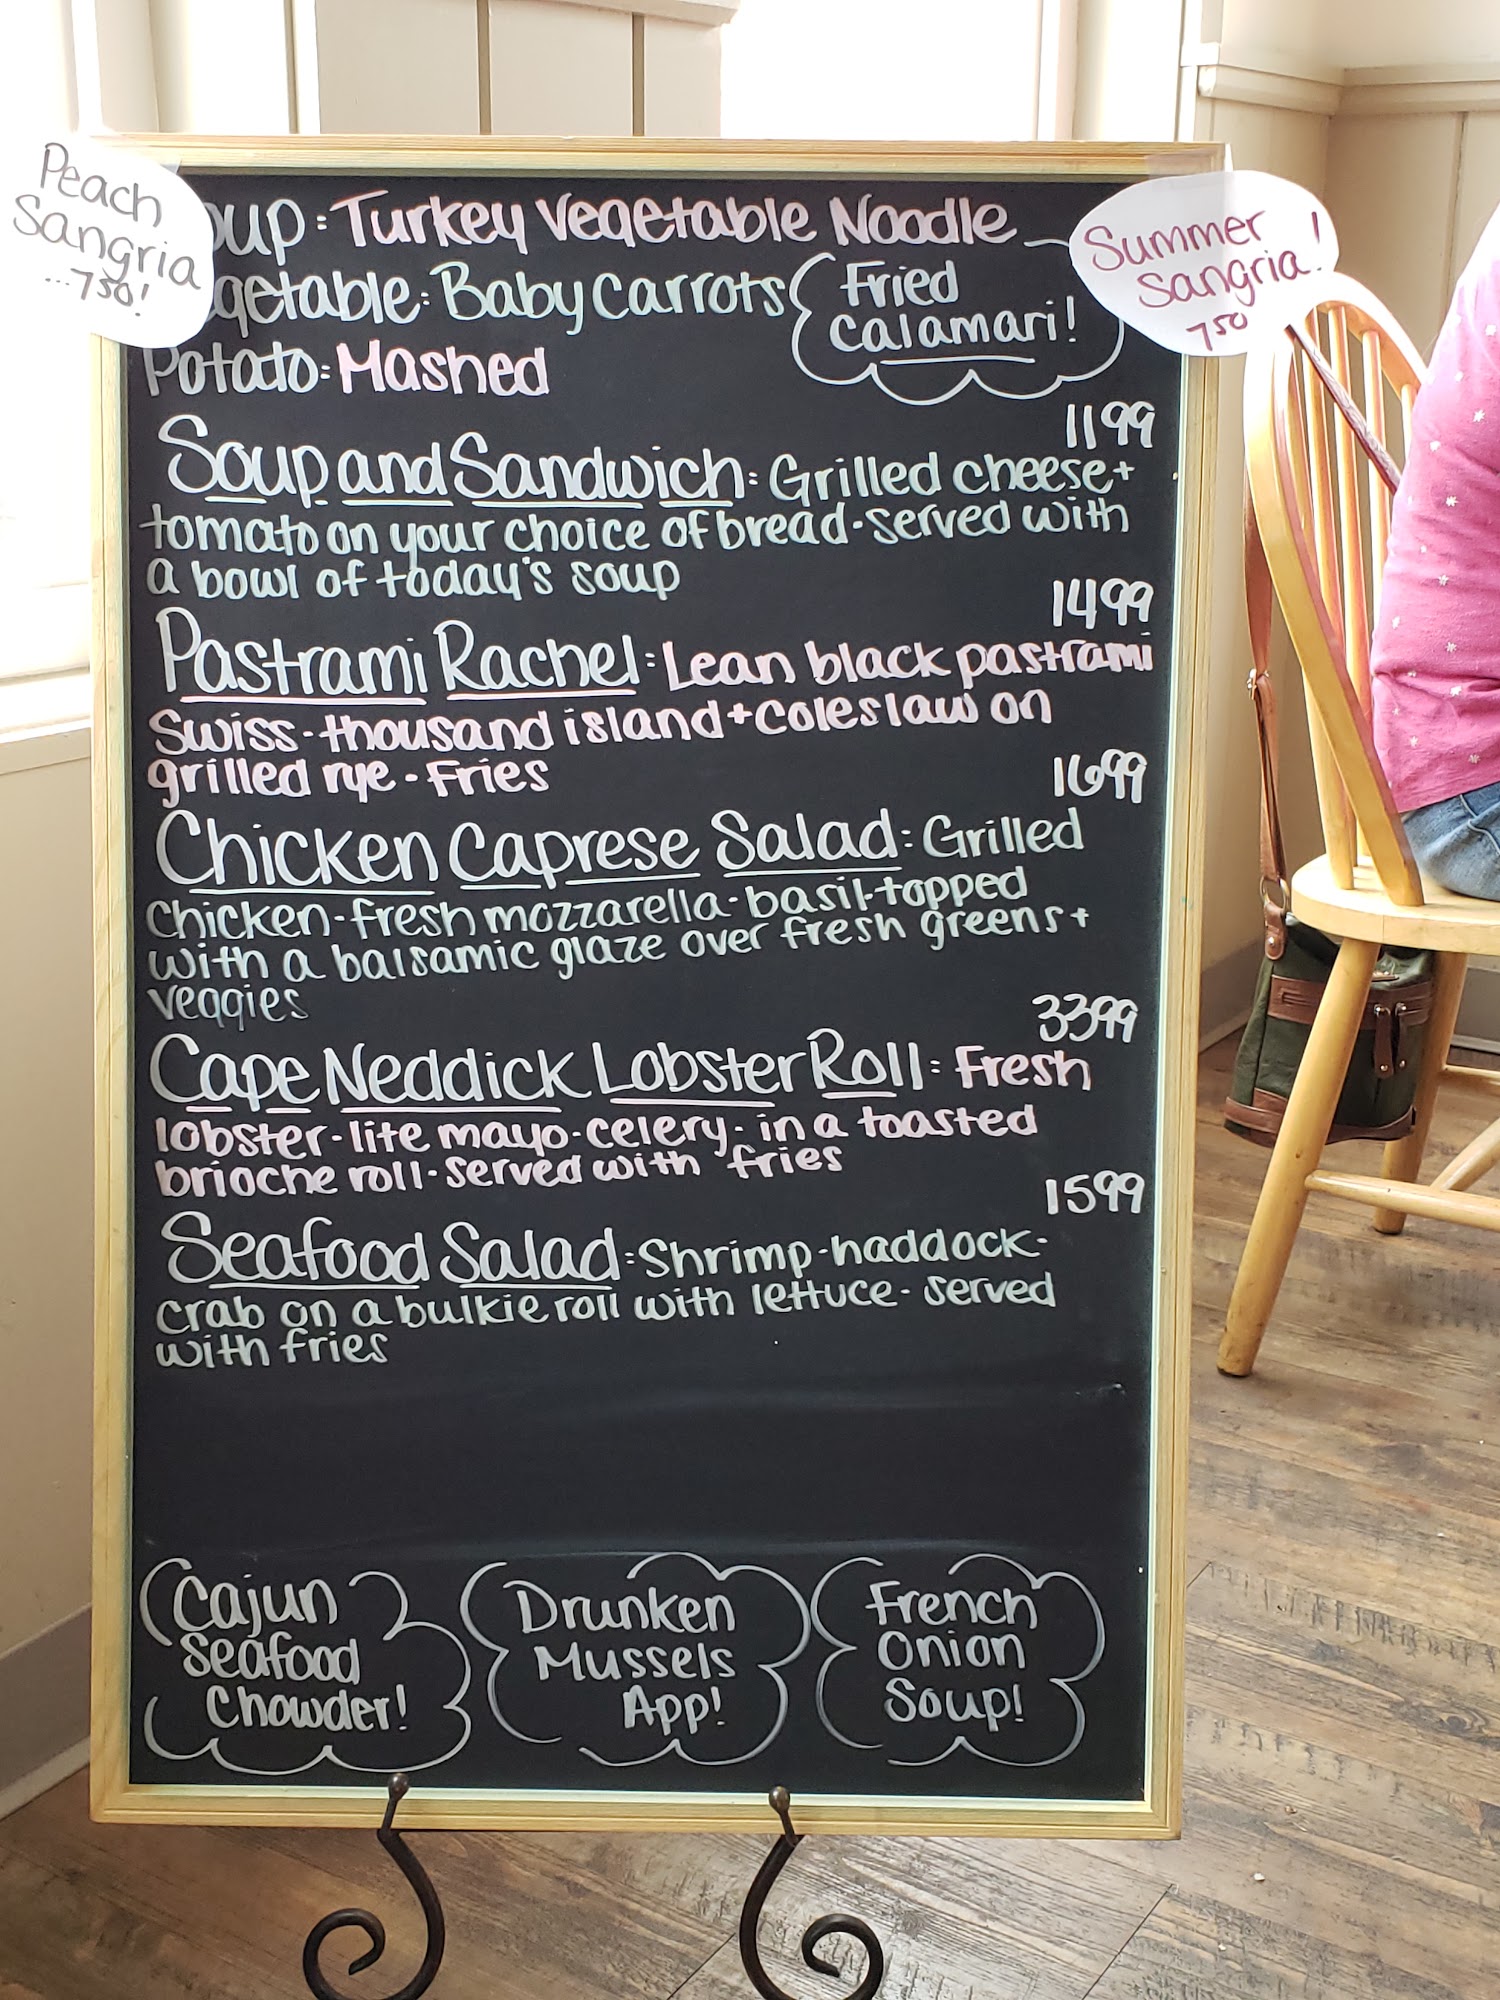 Peach
Sangria
...7 50!
Summer
Sangria!
7 50
oup: Turkey Vegetable Noodle
getable: Baby Carrots
Potato: Mashed
Fried
Calamari!
11 99
Soup and Sandwich: Grilled cheese +
tomato on your choice of bread - served with
a bowl of today's soup
14 99
Pastrami Rachel: Lean black pastrami
Swiss - thousand island + coleslaw on
grilled rye - Fries
16 99
Chicken Caprese Salad: Grilled
chicken - fresh mozzarella - basil - topped
with a balsamic glaze over fresh greens +
veggies
33 99
Cape Neddick Lobster Roll: Fresh
lobster - lite mayo - celery - in a toasted
brioche roll - served with fries
15 99
Seafood Salad: Shrimp - haddock -
crab on a bulkie roll with lettuce - served
with fries
Cajun
Seafood
Chowder!
Drunken
Mussels
App!
French
Onion
Soup!